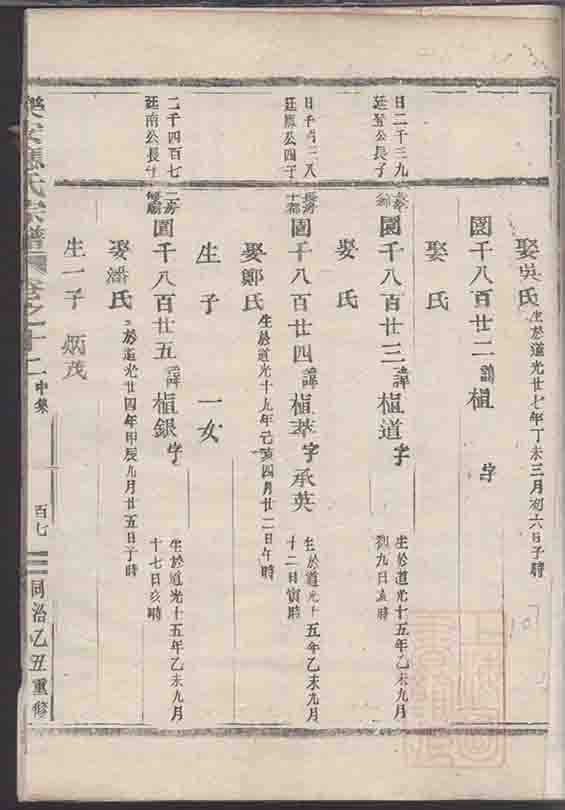 娶吳氏 生於道光廿七年丁未三月初六日子時
園千八百廿二 諱 植 字
娶 氏
日二千三九
廷登公長子
園千八百廿三 諱 植道 字
生於道光十五年乙未九月
初九日亥時
娶 氏
廷鳳公四子
園千八百廿四 諱 植萃 字 承英
生於道光十五年乙未九月
十二日寅時
娶鄭氏 生於道光十九年己亥四月廿二日午時
生 子 一女
二千四百七
廷南公長子
園千八百廿五 諱 植銀 字
生於道光十五年乙未九月
十七日亥時
娶潘氏 生於道光廿四年甲辰九月廿五日子時
生一子 炳茂
樂安 氏宗譜 卷之十二 中集 百七 同治乙丑重修
107